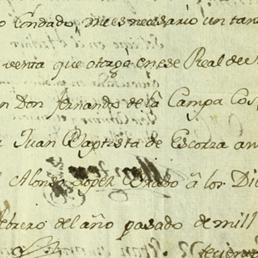 o Condado, me es necessario un tan
venta que otorgo en ese Real de
n Don Fernando de la Campa Cos
Juan Baptista de Escorza an
Alonso Lopez â los Di
febrero del año pasado de mill